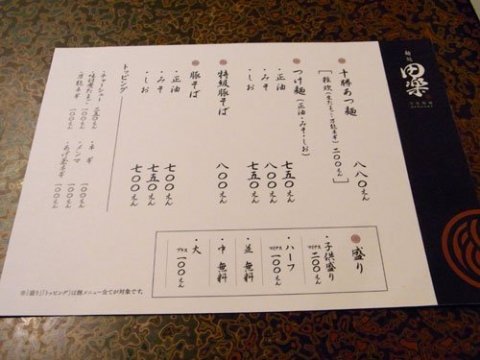 麺処
田楽
十勝あつ麺
八八〇えん
つけ麺(正油・みそ・しお)
・正油
七五〇えん
・みそ
八〇〇えん
・しお
七五〇えん
特級豚そば
八〇〇えん
豚そば
・正油
七〇〇えん
・みそ
七五〇えん
・しお
七〇〇えん
トッピング
・チャーシュー
二五〇えん
・味付煮たまご
一〇〇えん
・万能ネギ
一〇〇えん
・ネギ
一〇〇えん
・メンマ
一〇〇えん
一〇〇えん
盛り
・子供盛り
マイナス二〇〇えん
・ハーフ
マイナス一〇〇えん
・並 無料
・中 無料
・大
プラス一〇〇えん
※「盛り」「トッピング」は麺メニュー全てが対象です。